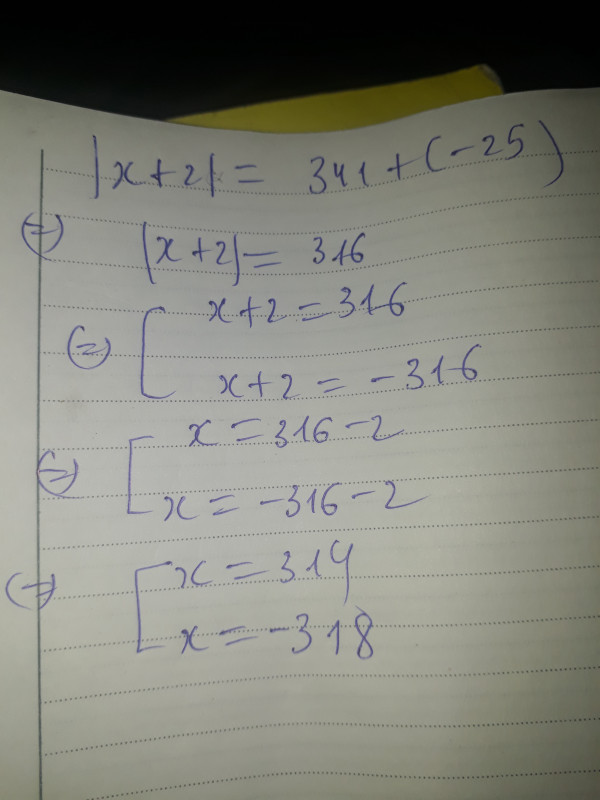 |x+2| = 341 + (-25)
⇔ |x+2| = 316
⇔ [ x+2 = 316
x+2 = -316
⇔ [ x = 316 - 2
x = -316 - 2
⇔ [ x = 314
x = -318